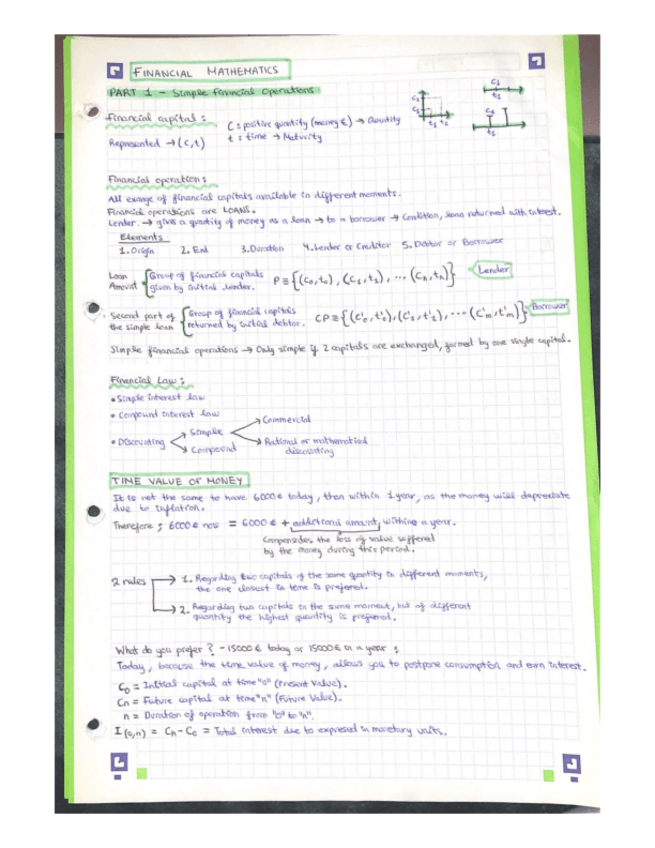 FINANCIAL MATHEMATICS
PART 1 - Simple Financial Operations
Financial capital:
C = positive quantity (money €) → Quantity
t = time → Maturity
Represented → (c,t)
Financial operation:
All exange of financial capitals available in different moments.
Financial operations are LOANS.
Lender → give a quantity of money as a loan → to a borrower → Condition, loan returned with interest.
Elements
1. Origin 2. End 3. Duration 4. Lender or Creditor 5. Debtor or Borrower
Loan Amount { Group of financial capitals given by initial lender. P ≡ {(C0,t0), (C1,t1), ... (Cn,tn)} Lender
Second part of the simple loan { Group of financial capitals returned by initial debtor. CP ≡ {(C'0,t'0),(C'1,t'1), ... (C'm,t'm)} Borrower
Simple financial operations → Only simple if 2 capitals are exchanged, formed by one single capital.
Financial Law:
• Simple interest law
• Compound interest law
• Discounting
Simple
Compound
Commercial
Rational or mathematical discounting
TIME VALUE OF MONEY
It is not the same to have 6000€ today, then within 1 year, as the money will depreciate
due to inflation.
Therefore; 6000€ now = 6000€ + additional amount, within a year.
Compensates the loss of value suffered
by the money during this period.
2 rules
1. Regarding two capitals of the same quantity in different moments,
the one closest in time is preferred.
2. Regarding two capitals in the same moment, but of different
quantity the highest quantity is preferred.
What do you prefer? - 15000€ today or 15000€ in a year:
Today, because the time value of money, allows you to postpone consumption and earn interest.
C0 = Initial capital at time "0" (Present Value).
Cn = Future capital at time "n" (Future Value).
n = Duration of operation from "0" to "n".
I(0,n) = Cn - C0 = Total interest due to expresed in monetary units.